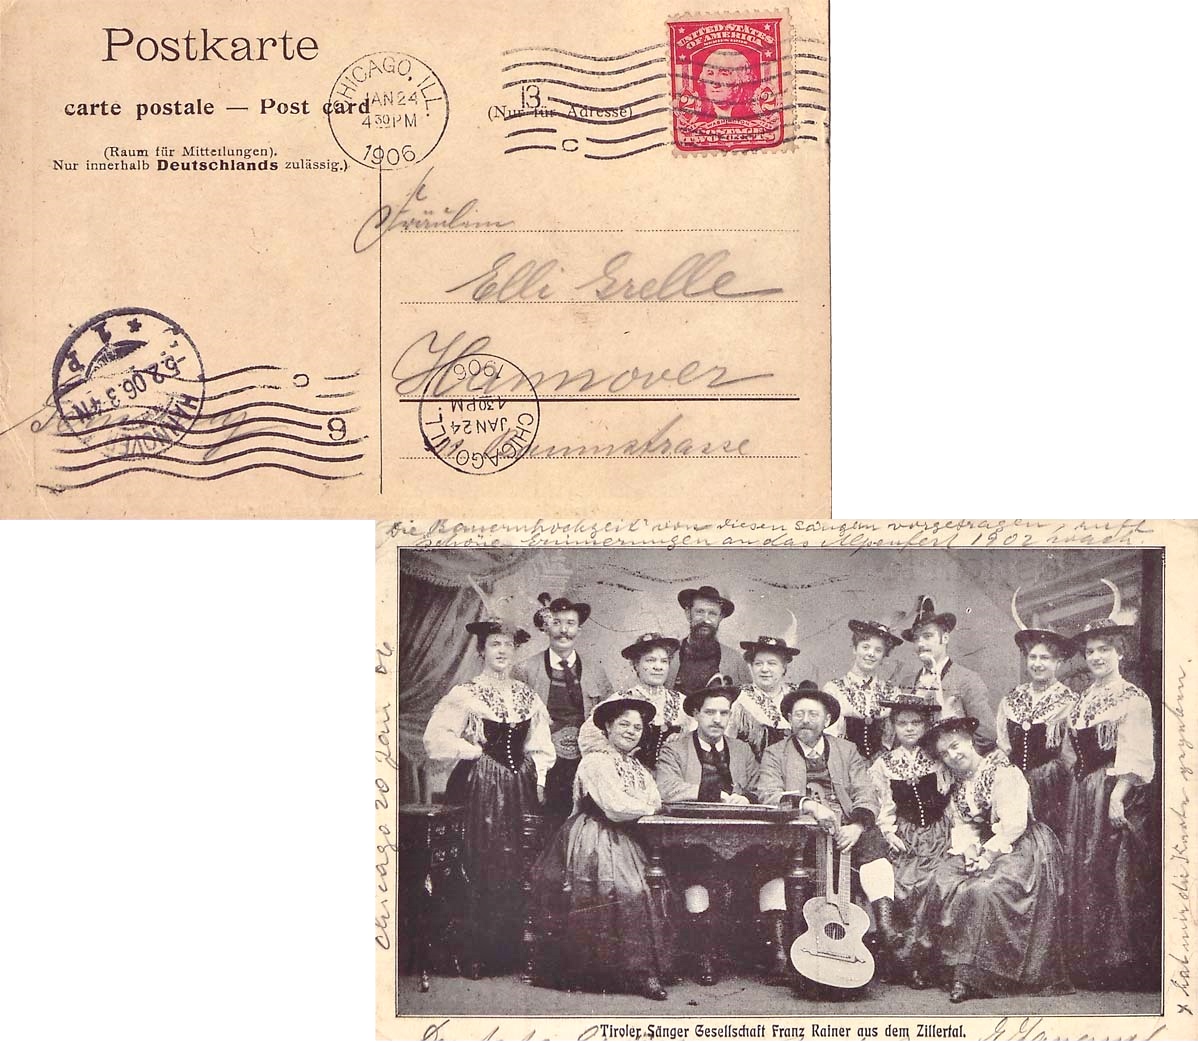 Postkarte
carte postale — Post card
(Raum für Mitteilungen).
Nur innerhalb Deutschlands zulässig.)
CHICAGO, ILL.
JAN 24
4 30 PM
1906
13
(Nur für Adresse)
C
UNITED STATES
OF AMERICA
SERIES 1902
2 2
WASHINGTON
POSTAGE
TWO CENTS
Fräulein
Elli Grelle
Hannover
CHICAGO, ILL.
JAN 24
4 30 PM
1906
HANNOVER
5.2.06.3-4N
* 1 p
C
9
Die "Bauernhochzeit" von diesen Sängern vorgetragen, ruft
schöne Erinnerungen an das Alpenfest 1902 wach.
Chicago 20 Jan 06
x hat mir die Karte gegeben.
Tiroler Sänger Gesellschaft Franz Rainer aus dem Zillertal.